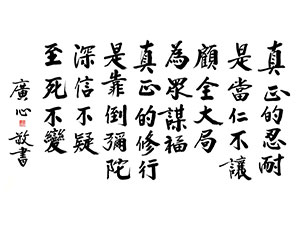 真正的忍耐
是當仁不讓
顧全大局
為眾謀福
真正的修行
是靠倒彌陀
深信不疑
至死不變
廣心敬書